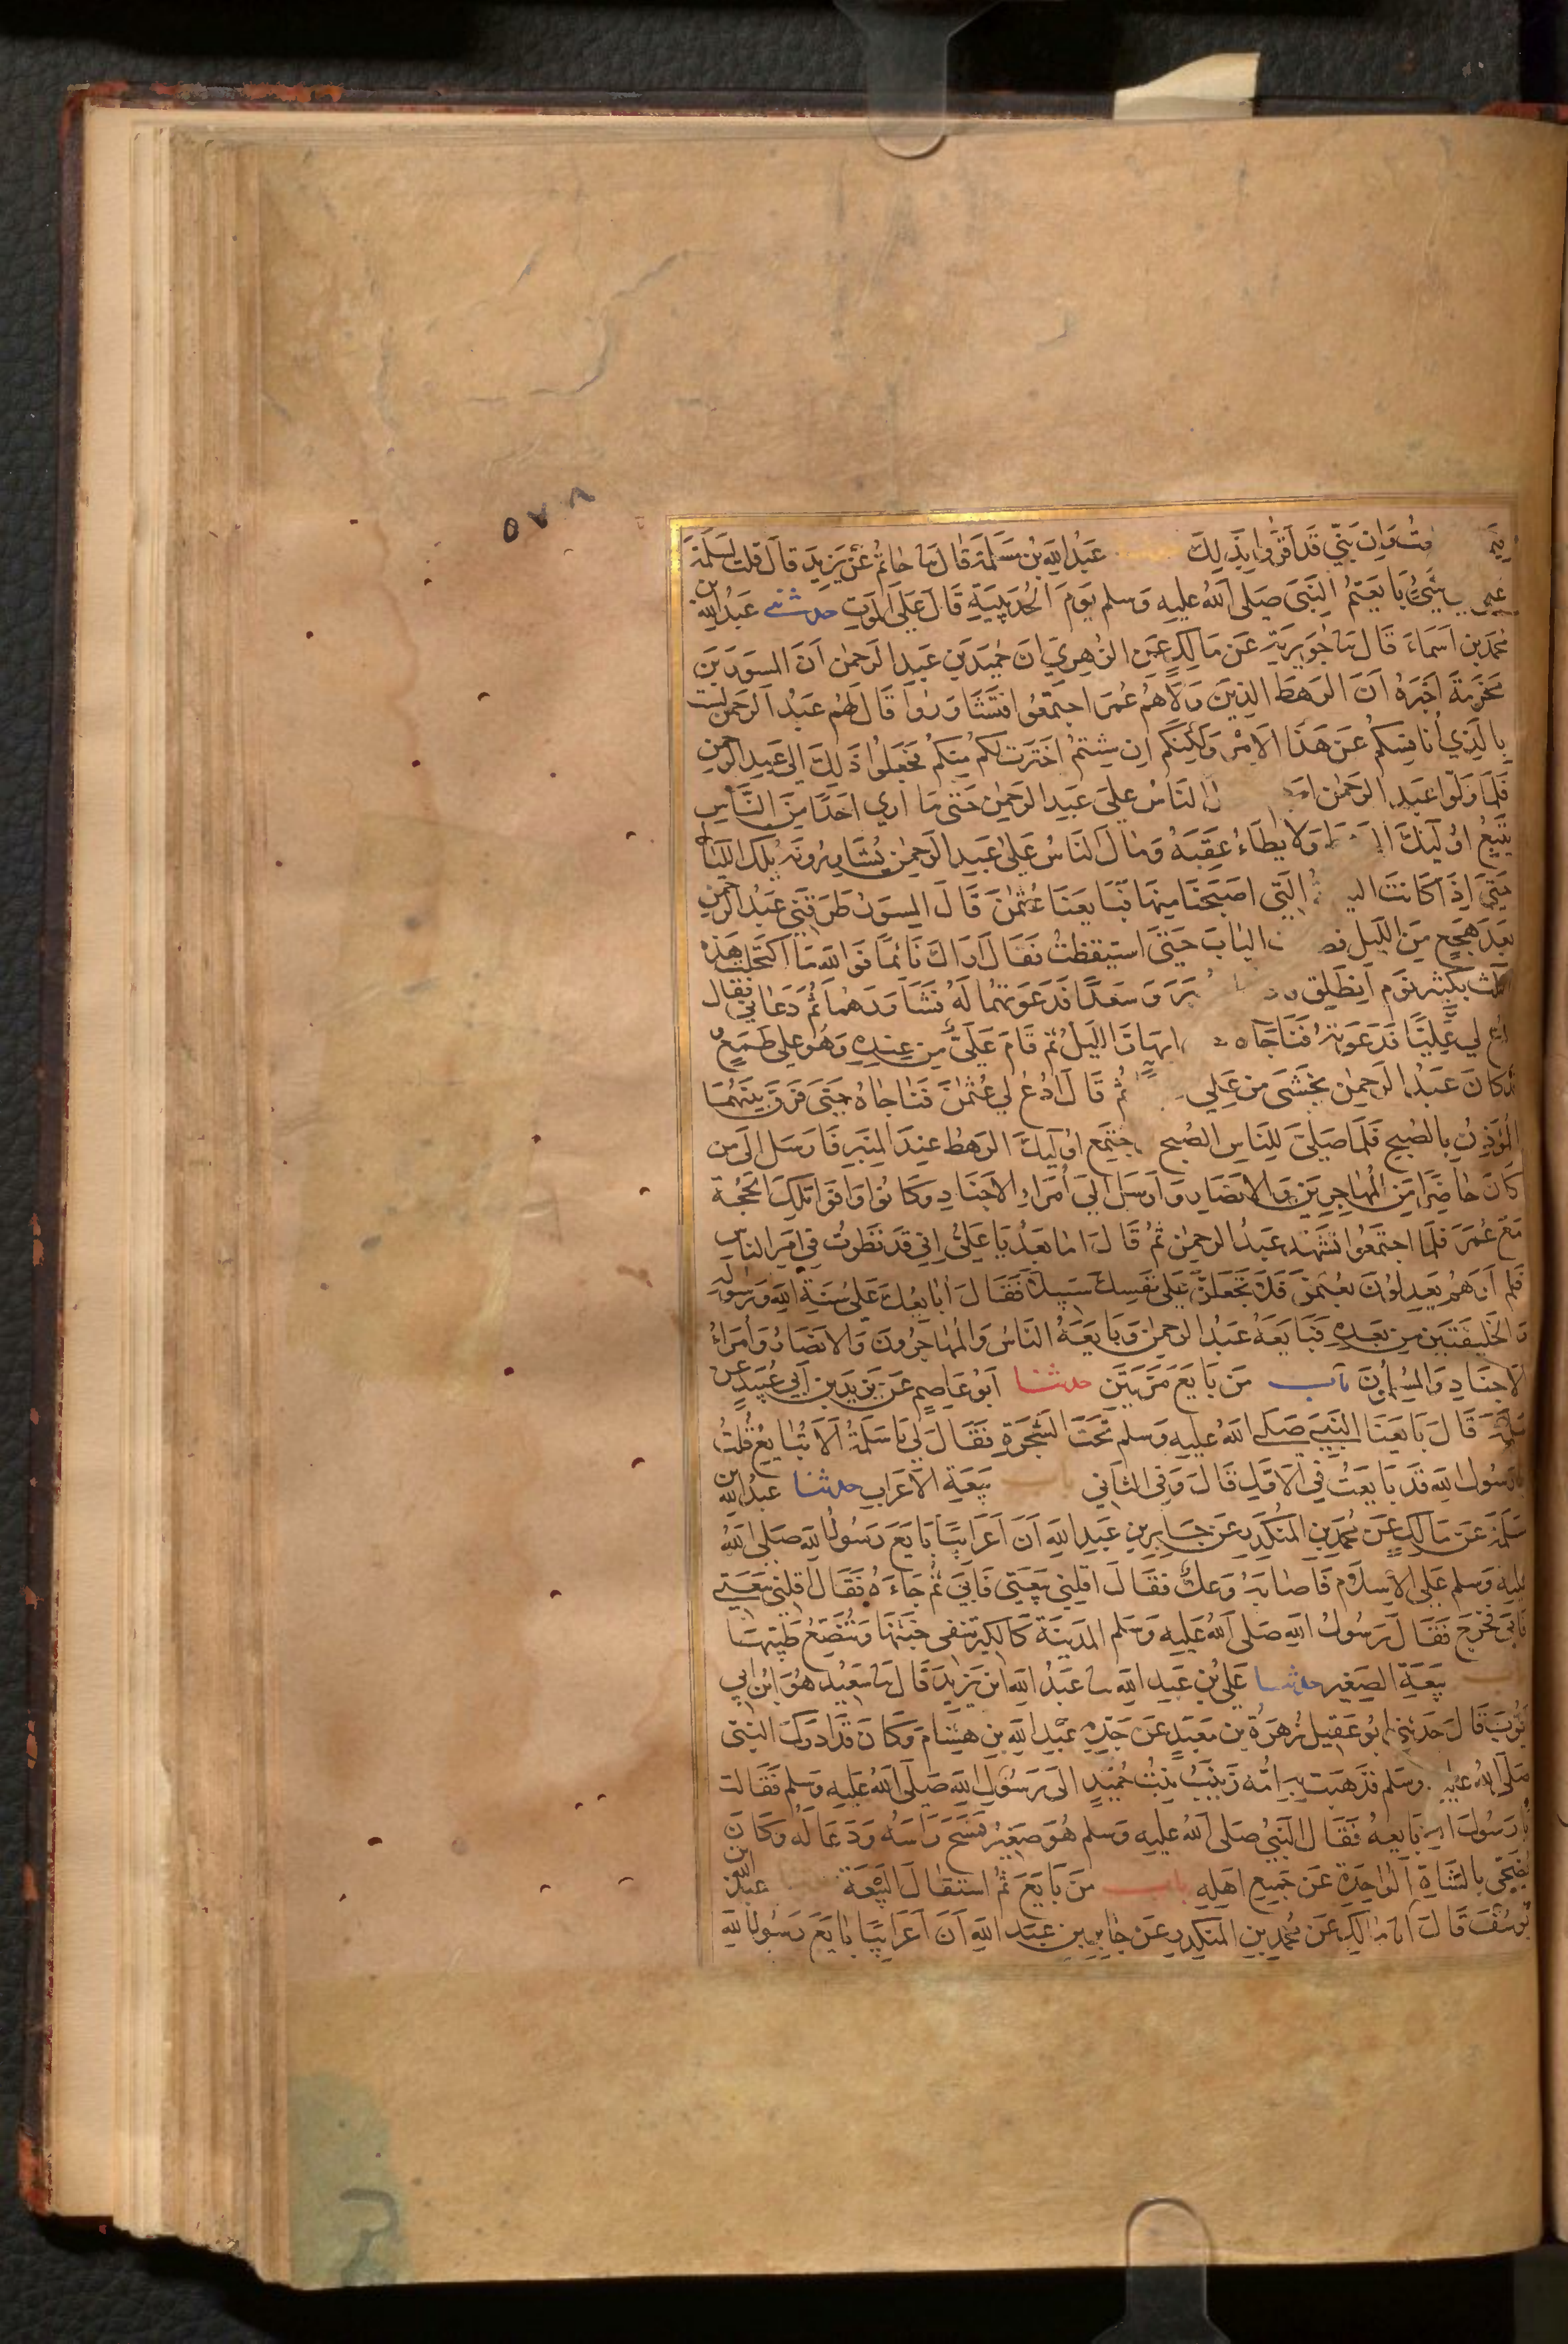 ٥٧٨
وان بني قد اقروا بذلك عبد الله بن مسلمة قال نا حاتم عن يزيد قال قلت لسلمة
على شيء بايعتم النبي صلى الله عليه وسلم يوم الحديبية قال على الموت حدثني عبد الله بن
محمد بن اسماء قال نا جويرية عن مالك عن الزهري ان حميد بن عبد الرحمن ان المسور بن
مخرمة اخبره ان الرهط الذين ولاهم عمر اجتمعوا فتشاوروا قال لهم عبد الرحمن لست
بالذي انافسكم عن هذا الامر ولكنكم ان شئتم اخترت لكم منكم فجعلوا ذلك الى عبد الرحمن
فلما ولوا عبد الرحمن الناس على عبد الرحمن حتى ما ارى احدا من الناس
يتبع اولئك ولا يطاء عقبه ومال الناس على عبد الرحمن يشاورونه تلك الليالي
حتى اذا كانت التي اصبحنا منها فبايعنا عثمن قال المسور طرقني عبد الرحمن
بعد هجع من الليل الباب حتى استيقظت فقال اراك نائما فوالله ما اكتحلت هذه
الثلث بكثير نوم انطلق وسعدا فدعوتهما له فشاورهما ثم دعاني فقال
ادع لي عليا فدعوته فناجاه ابهار الليل ثم قام علي من عنده وهو على طمع
وقد كان عبد الرحمن يخشى من علي ثم قال ادع لي عثمن فناجاه حتى فرق بينهما
المؤذن بالصبح فلما صلى للناس الصبح اجتمع اولئك الرهط عند المنبر فارسل الى من
كان حاضرا من المهاجرين والانصار وارسل الى أمراء الاجناد وكانوا وافوا تلك الحجة
مع عمر فلما اجتمعوا تشهد عبد الرحمن ثم قال اما بعد يا علي اني قد نظرت في امر الناس
فلم أرهم يعدلون بعثمن فلا تجعلن على نفسك سبيلا فقال أبايعك على سنة الله ورسوله
والخليفتين من بعده فبايعه عبد الرحمن وبايعه الناس والمهاجرون والانصار وأمراء
الاجناد والمسلمون باب من بايع مرتين حدثنا ابو عاصم عن يزيد بن أبي عبيد عن
سلمة قال بايعنا النبي صلى الله عليه وسلم تحت الشجرة فقال لي يا سلمة ألا تبايع قلت
يا رسول الله قد بايعت في الاول قال وفي الثاني باب بيعة الاعراب حدثنا عبد الله بن
مسلمة عن مالك عن محمد بن المنكدر عن جابر بن عبد الله أن اعرابيا بايع رسول الله صلى الله
عليه وسلم على الاسلام فاصابه وعك فقال اقلني بيعتي فأبى ثم جاءه فقال اقلني بيعتي
فأبى فخرج فقال رسول الله صلى الله عليه وسلم المدينة كالكير تنفي خبثها وتنصع طيبها
باب بيعة الصغير حدثنا علي بن عبد الله نا عبد الله ابن يزيد قال نا سعيد هو ابن ابي
ايوب قال حدثني ابو عقيل زهرة بن معبد عن جده عبد الله بن هشام وكان قد ادرك النبي
صلى الله عليه وسلم فذهبت به امه زينب بنت حميد الى رسول الله صلى الله عليه وسلم فقالت
يا رسول الله بايعه فقال النبي صلى الله عليه وسلم هو صغير فمسح رأسه ودعا له وكان
يضحي بالشاة الواحدة عن جميع اهله باب من بايع ثم استقال البيعة عبد الله بن
يوسف قال انا مالك عن محمد بن المنكدر عن جابر بن عبد الله أن أعرابيا بايع رسول الله